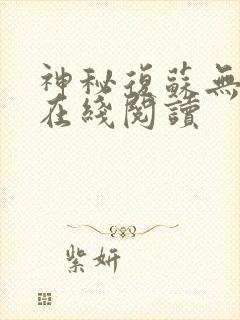 神秘復蘇無
在綫閱讀
紫妍